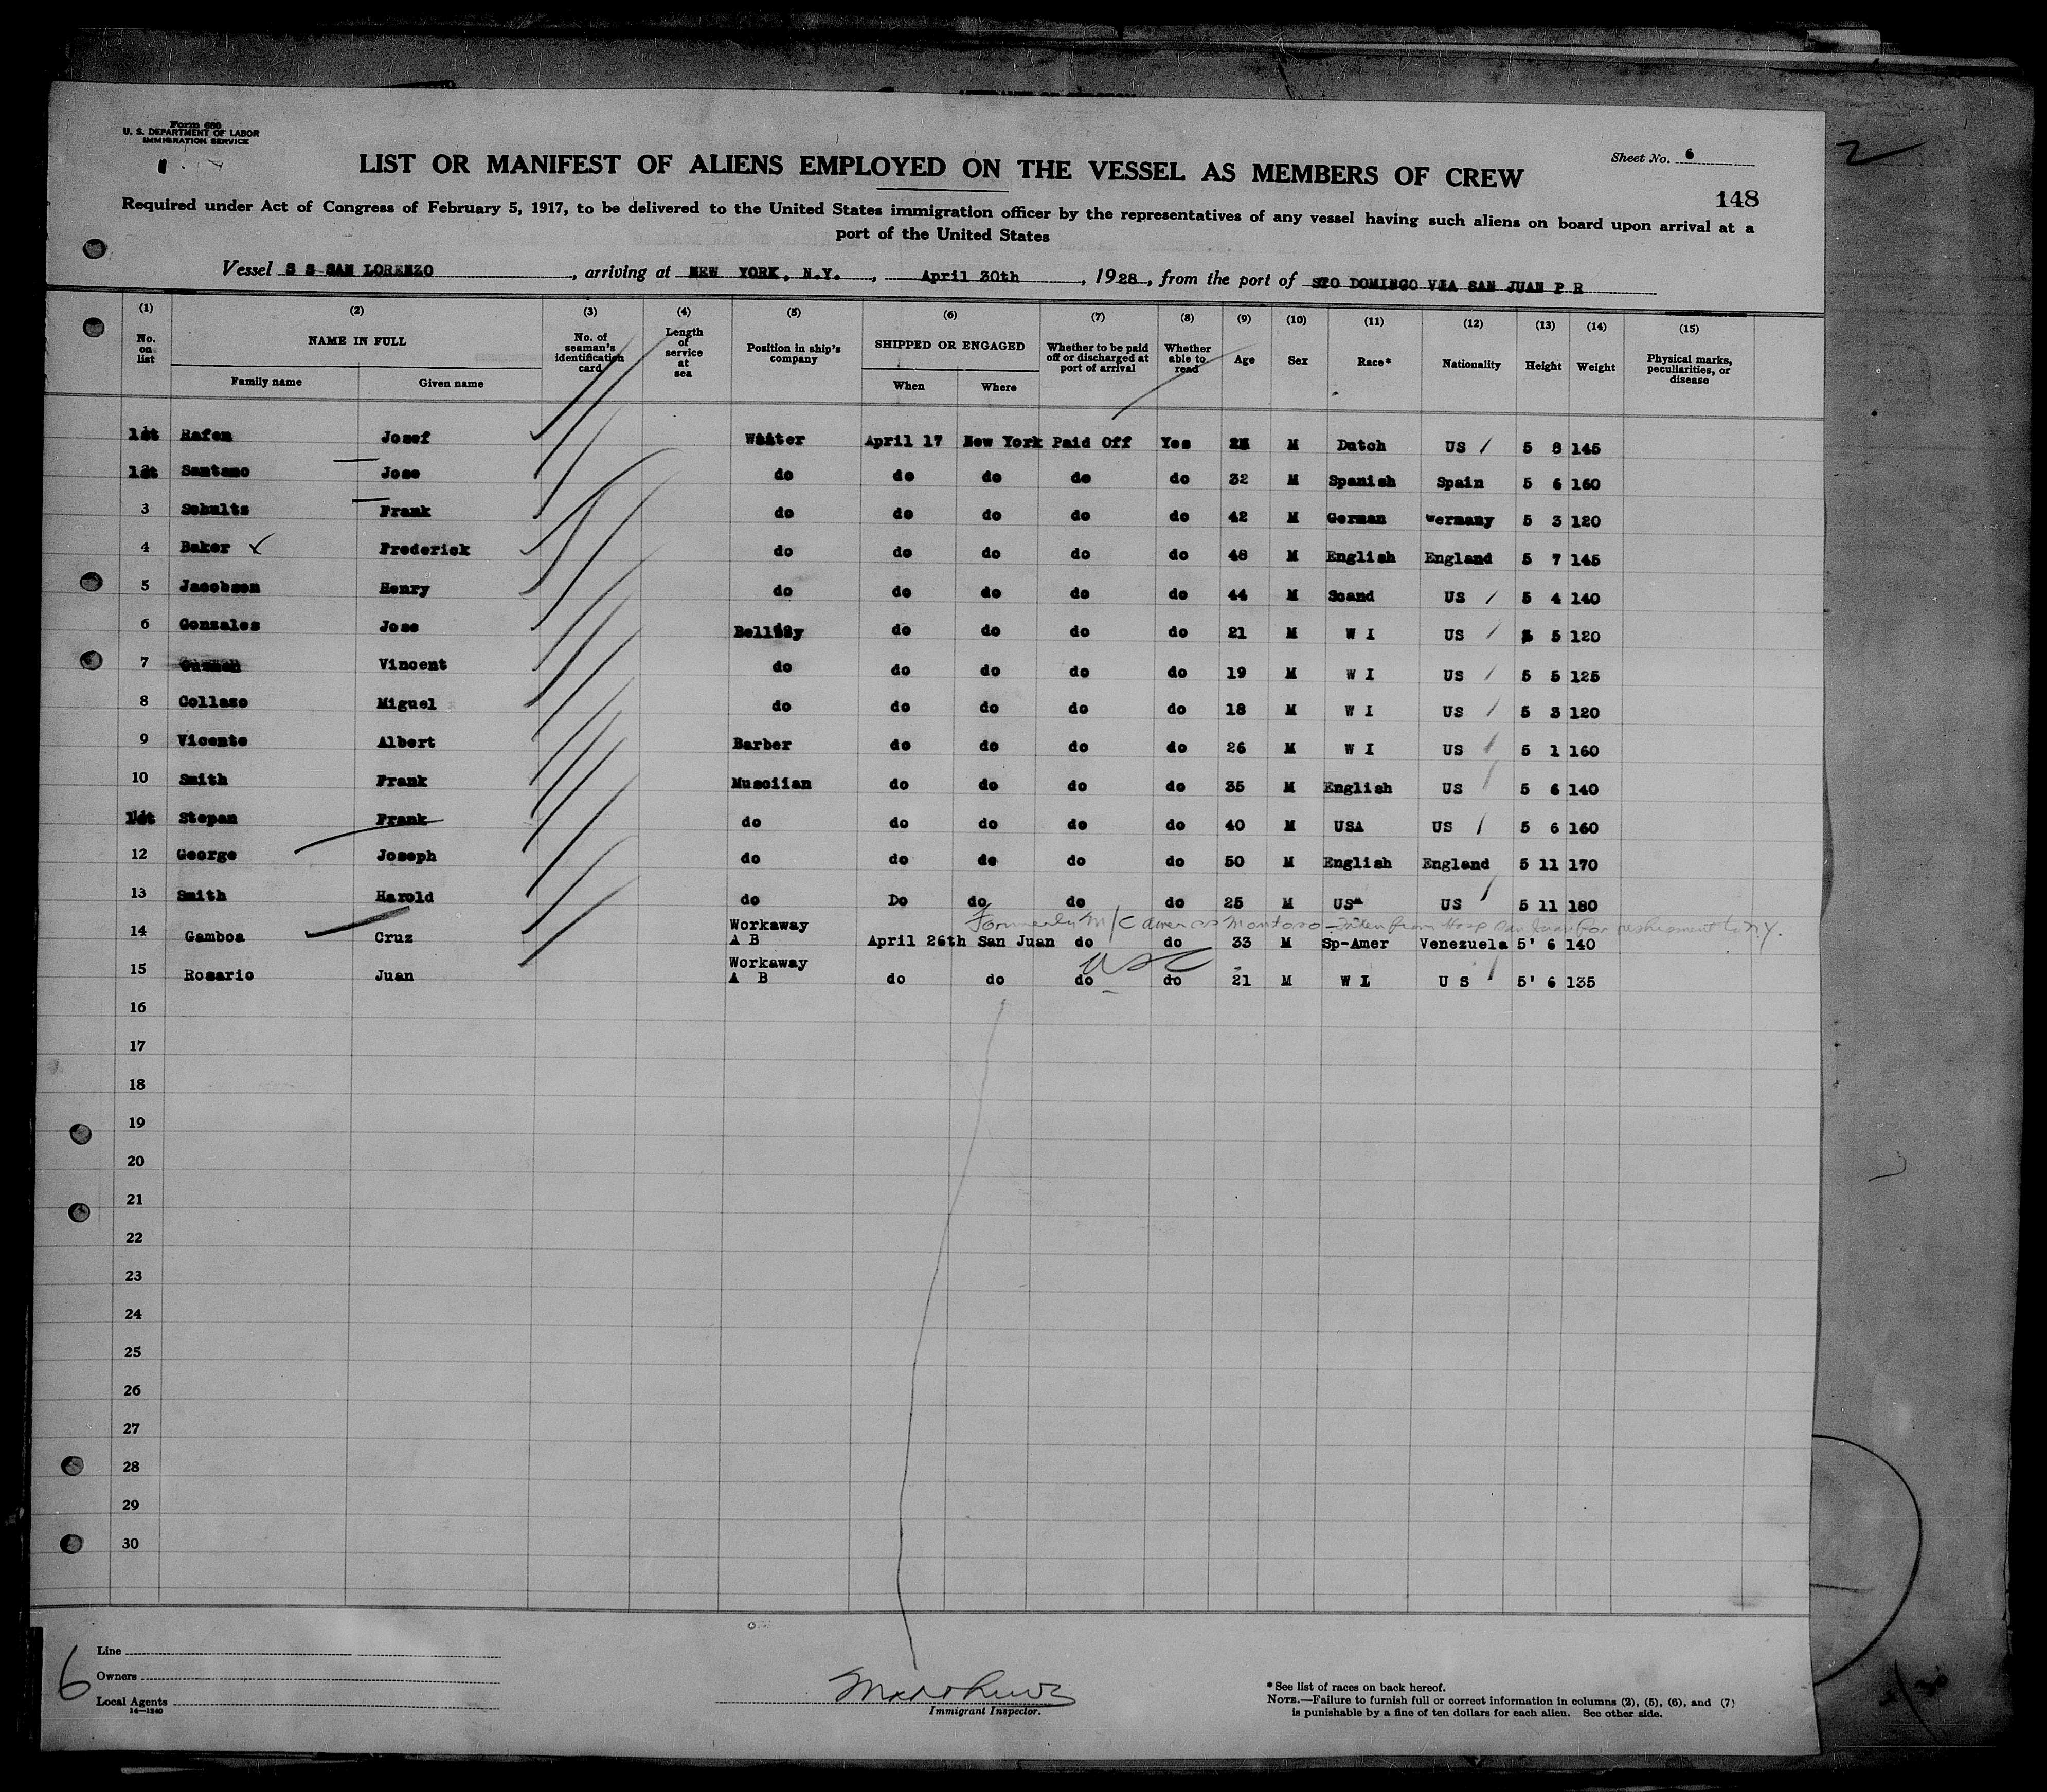 Form 689
U. S. DEPARTMENT OF LABOR
IMMIGRATION SERVICE
Sheet No. 6
LIST OR MANIFEST OF ALIENS EMPLOYED ON THE VESSEL AS MEMBERS OF CREW
148
Required under Act of Congress of February 5, 1917, to be delivered to the United States immigration officer by the representatives of any vessel having such aliens on board upon arrival at a
port of the United States
Vessel S S SAN LORENZO, arriving at NEW YORK, N.Y., April 30th, 1928, from the port of STO DOMINGO VIA SAN JUAN P R
(1) (2) (3) (4) (5) (6) (7) (8) (9) (10) (11) (12) (13) (14) (15)
No. on list NAME IN FULL No. of seaman's identification card Length of service at sea Position in ship's company SHIPPED OR ENGAGED Whether to be paid off or discharged at port of arrival Whether able to read Age Sex Race* Nationality Height Weight Physical marks, peculiarities, or disease
Family name Given name When Where
Hafen Josef Waiter April 17 New York Paid Off Yes M Dutch US 5 8 145
Santano Jose do do do do do 32 M Spanish Spain 5 6 160
3 Schultz Frank do do do do do 42 M German Germany 5 3 120
4 Baker Frederick do do do do do 48 M English England 5 7 145
5 Jacobsen Henry do do do do do 44 M Scand US 5 4 140
6 Gonzales Jose Bellboy do do do do 21 M W I US 5 5 120
7 Vincent do do do do do 19 M W I US 5 5 125
8 Collazo Miguel do do do do do 18 M W I US 5 3 120
9 Vicente Albert Barber do do do do 26 M W I US 5 1 160
10 Smith Frank Musciian do do do do 35 M English US 5 6 140
Stepan Frank do do do do do 40 M USA US 5 6 160
12 George Joseph do do do do do 50 M English England 5 11 170
13 Smith Harold do Do do do do 25 M USA US 5 11 180
Formerly M/C amer ss Montoso - Taken from Hosp San Juan for reshipment to N.Y.
14 Gamboa Cruz Workaway A B April 26th San Juan do do 33 M Sp-Amer Venezuela 5' 6 140
USC
15 Rosario Juan Workaway A B do do do do 21 M W I U S 5' 6 135
16
17
18
19
20
21
22
23
24
25
26
27
28
29
30
6
Line
Owners
Local Agents
14—1240
Immigrant Inspector.
*See list of races on back hereof.
NOTE.—Failure to furnish full or correct information in columns (2), (5), (6), and (7)
is punishable by a fine of ten dollars for each alien. See other side.
2